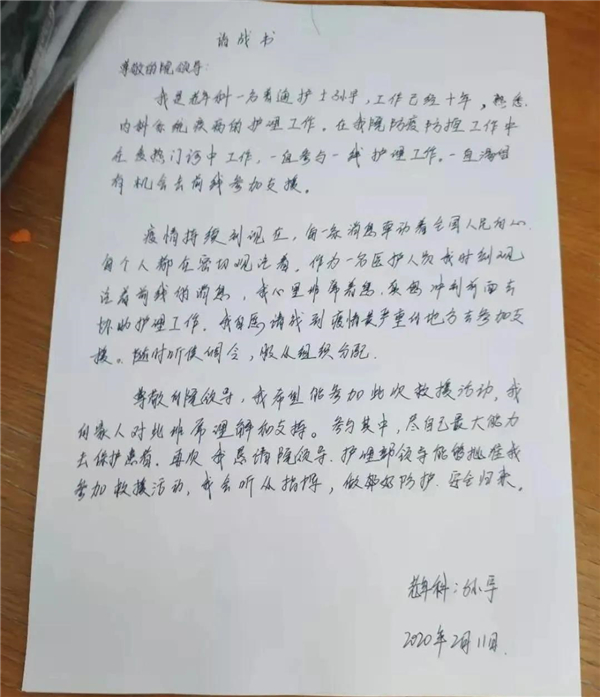 请战书
尊敬的院领导:
我是老年科一名普通护士孙宇,工作已经十年,熟悉
内科系统疾病的护理工作。在我院防疫防控工作中
在发热门诊中工作,一直参与一线护理工作。一直渴望
有机会去前线参加支援。
疫情持续到现在,每一条消息牵动着全国人民的心.
每个人都在密切观注着。作为一名医护人员我时刻观
注着前线的消息,我心里非常着急,真想冲到前面去
协助护理工作。我自愿请战到疫情最严重的地方去参加支
援。随时听候调令,服从组织分配.
尊敬的院领导,我希望能参加此次救援活动,我
的家人对此非常理解和支持。参与其中,尽自己最大能力
去保护患者。再次 我恳请院领导.护理部领导能够批准我
参加救援活动,我会听从指挥,做好防护.安全归来。
老年科:孙宇
2020年2月11日.